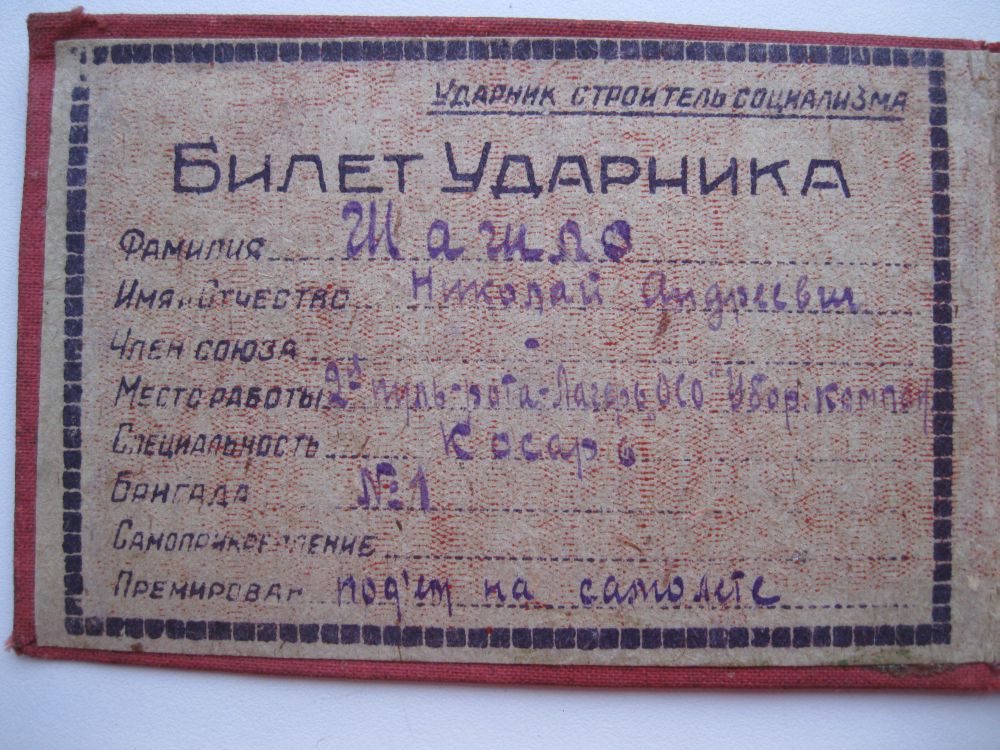 УДАРНИК СТРОИТЕЛЬ СОЦИАЛИЗМА
БИЛЕТ УДАРНИКА
ФАМИЛИЯ Шагило
ИМЯ и ОТЧЕСТВО Николай Андреевич
ЧЛЕН СОЮЗА -
МЕСТО РАБОТЫ 2й пуль-рота-Лагерь ОСО
СПЕЦИАЛЬНОСТЬ Косарь
БРИГАДА №1
САМОПРИКРЕПЛЕНИЕ
ПРЕМИРОВАН под'ём на самолете